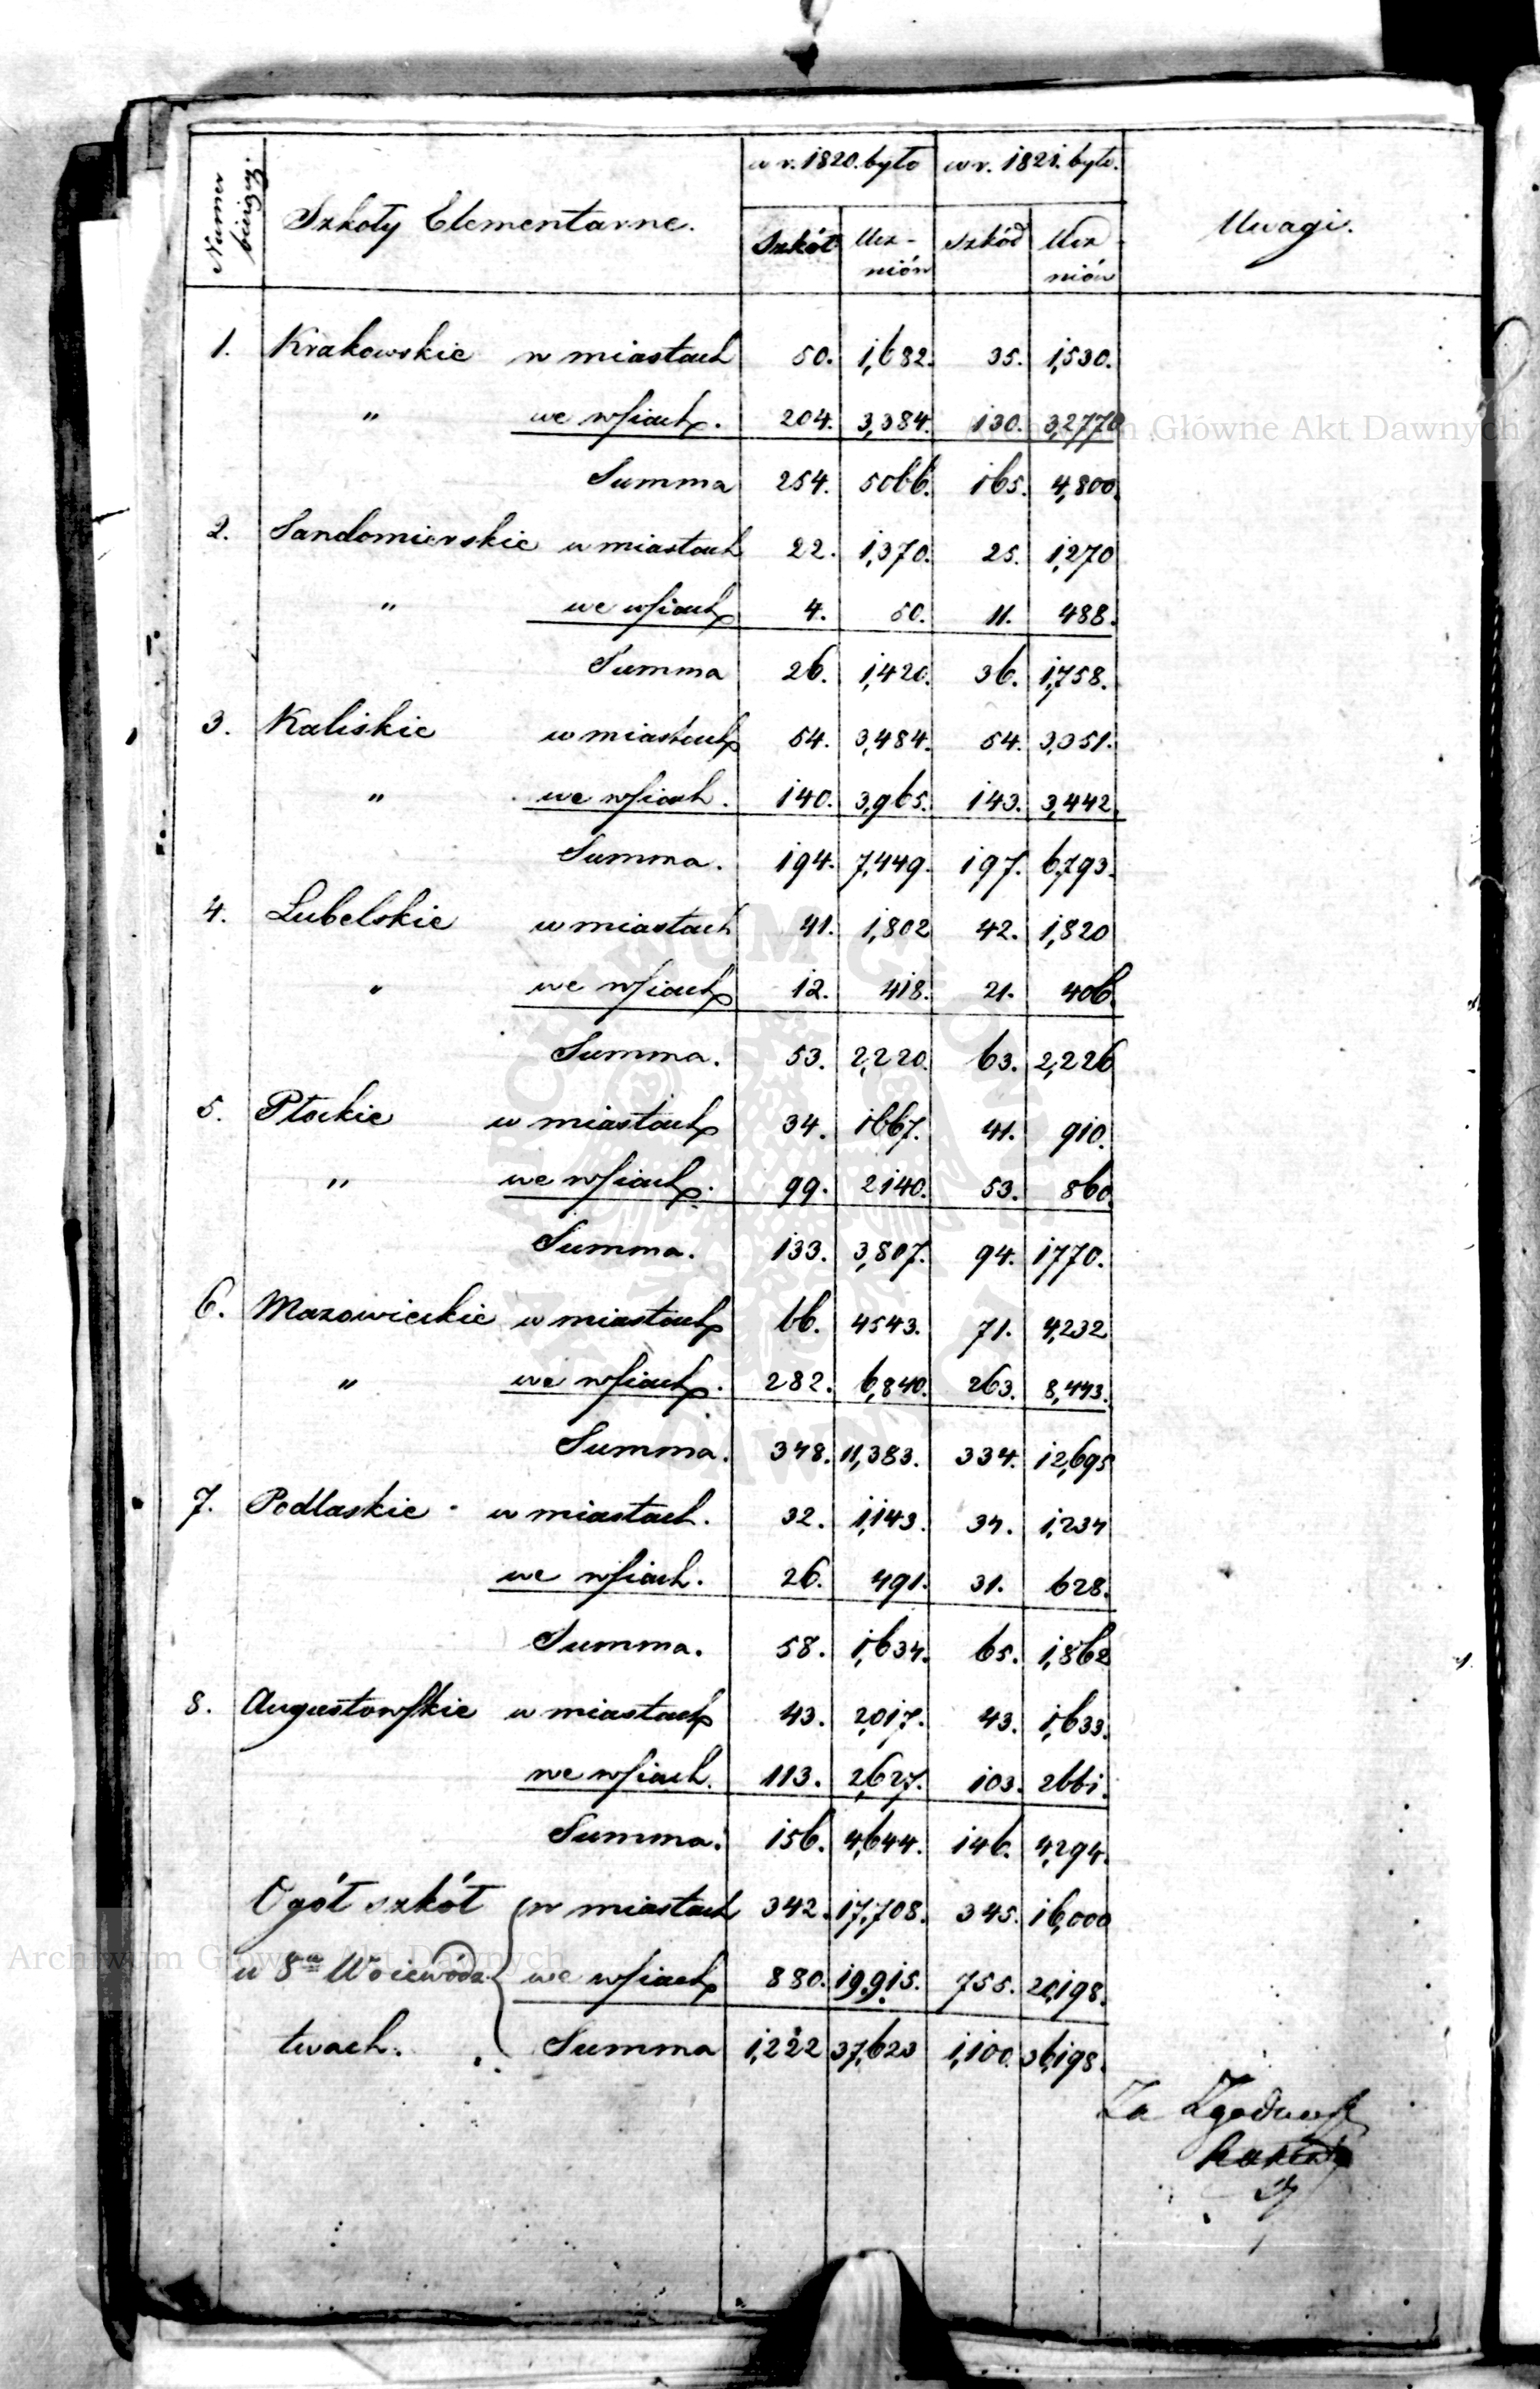 Numer bieżący. Szkoły Elementarne. w r. 1820. było w r. 1821. było. Uwagi.
Szkół Ucz-niów Szkół Ucz-niów
1. Krakowskie w miastach 50. 1,682. 35. 1,530.
" we wsiach. 204. 3,384. 130. 3,2770
Summa 254. 5066. 165. 4,800.
2. Sandomierskie w miastach 22. 1,370. 25. 1,270
" we wsiach 4. 50. 11. 488.
Summa 26. 1,420. 36. 1,758.
3. Kaliskie w miastach 54. 3,484. 54. 3,351.
" we wsiach. 140. 3,965. 143. 3,442.
Summa. 194. 7,449. 197. 6,793.
4. Lubelskie w miastach 41. 1,802 42. 1,820
" we wsiach 12. 418. 21. 406.
Summa. 53. 2,220. 63. 2,226
5. Płockie w miastach 34. 1667. 41. 910.
" we wsiach. 99. 2140. 53. 860.
Summa. 133. 3,807. 94. 1770.
6. Mazowieckie w miastach 66. 4543. 71. 4,232
" we wsiach. 282. 6,840. 263. 8,443.
Summa. 348. 11,383. 334. 12,695
7. Podlaskie w miastach. 32. 1,143. 34. 1,234
we wsiach. 26. 491. 31. 628.
Summa. 58. 1,634. 65. 1,862
8. Augustowskie w miastach 43. 2,017. 43. 1,633.
we wsiach. 113. 2,627. 103. 2661.
Summa. 156. 4,644. 146. 4,294.
Ogół szkół w miastach 342. 17,708. 345. 16,000
w 8miu Woiewódz we wsiach 880. 19,915. 755. 20,198.
twach. Summa 1,222 37,623 1,100. 36,198.
Za Zgodność
Archiwum Główne Akt Dawnych
Archiwum Główne Akt Dawnych
ARCHIWUM GŁÓWNE AKT DAWNYCH